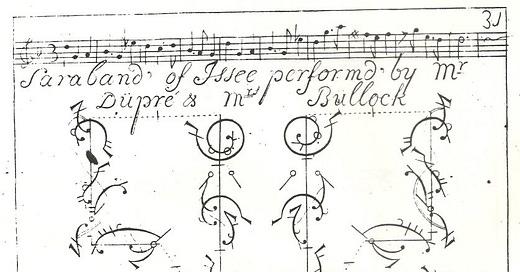 31
Saraband of Issee performd by Mr
Dupré & Mrs Bullock